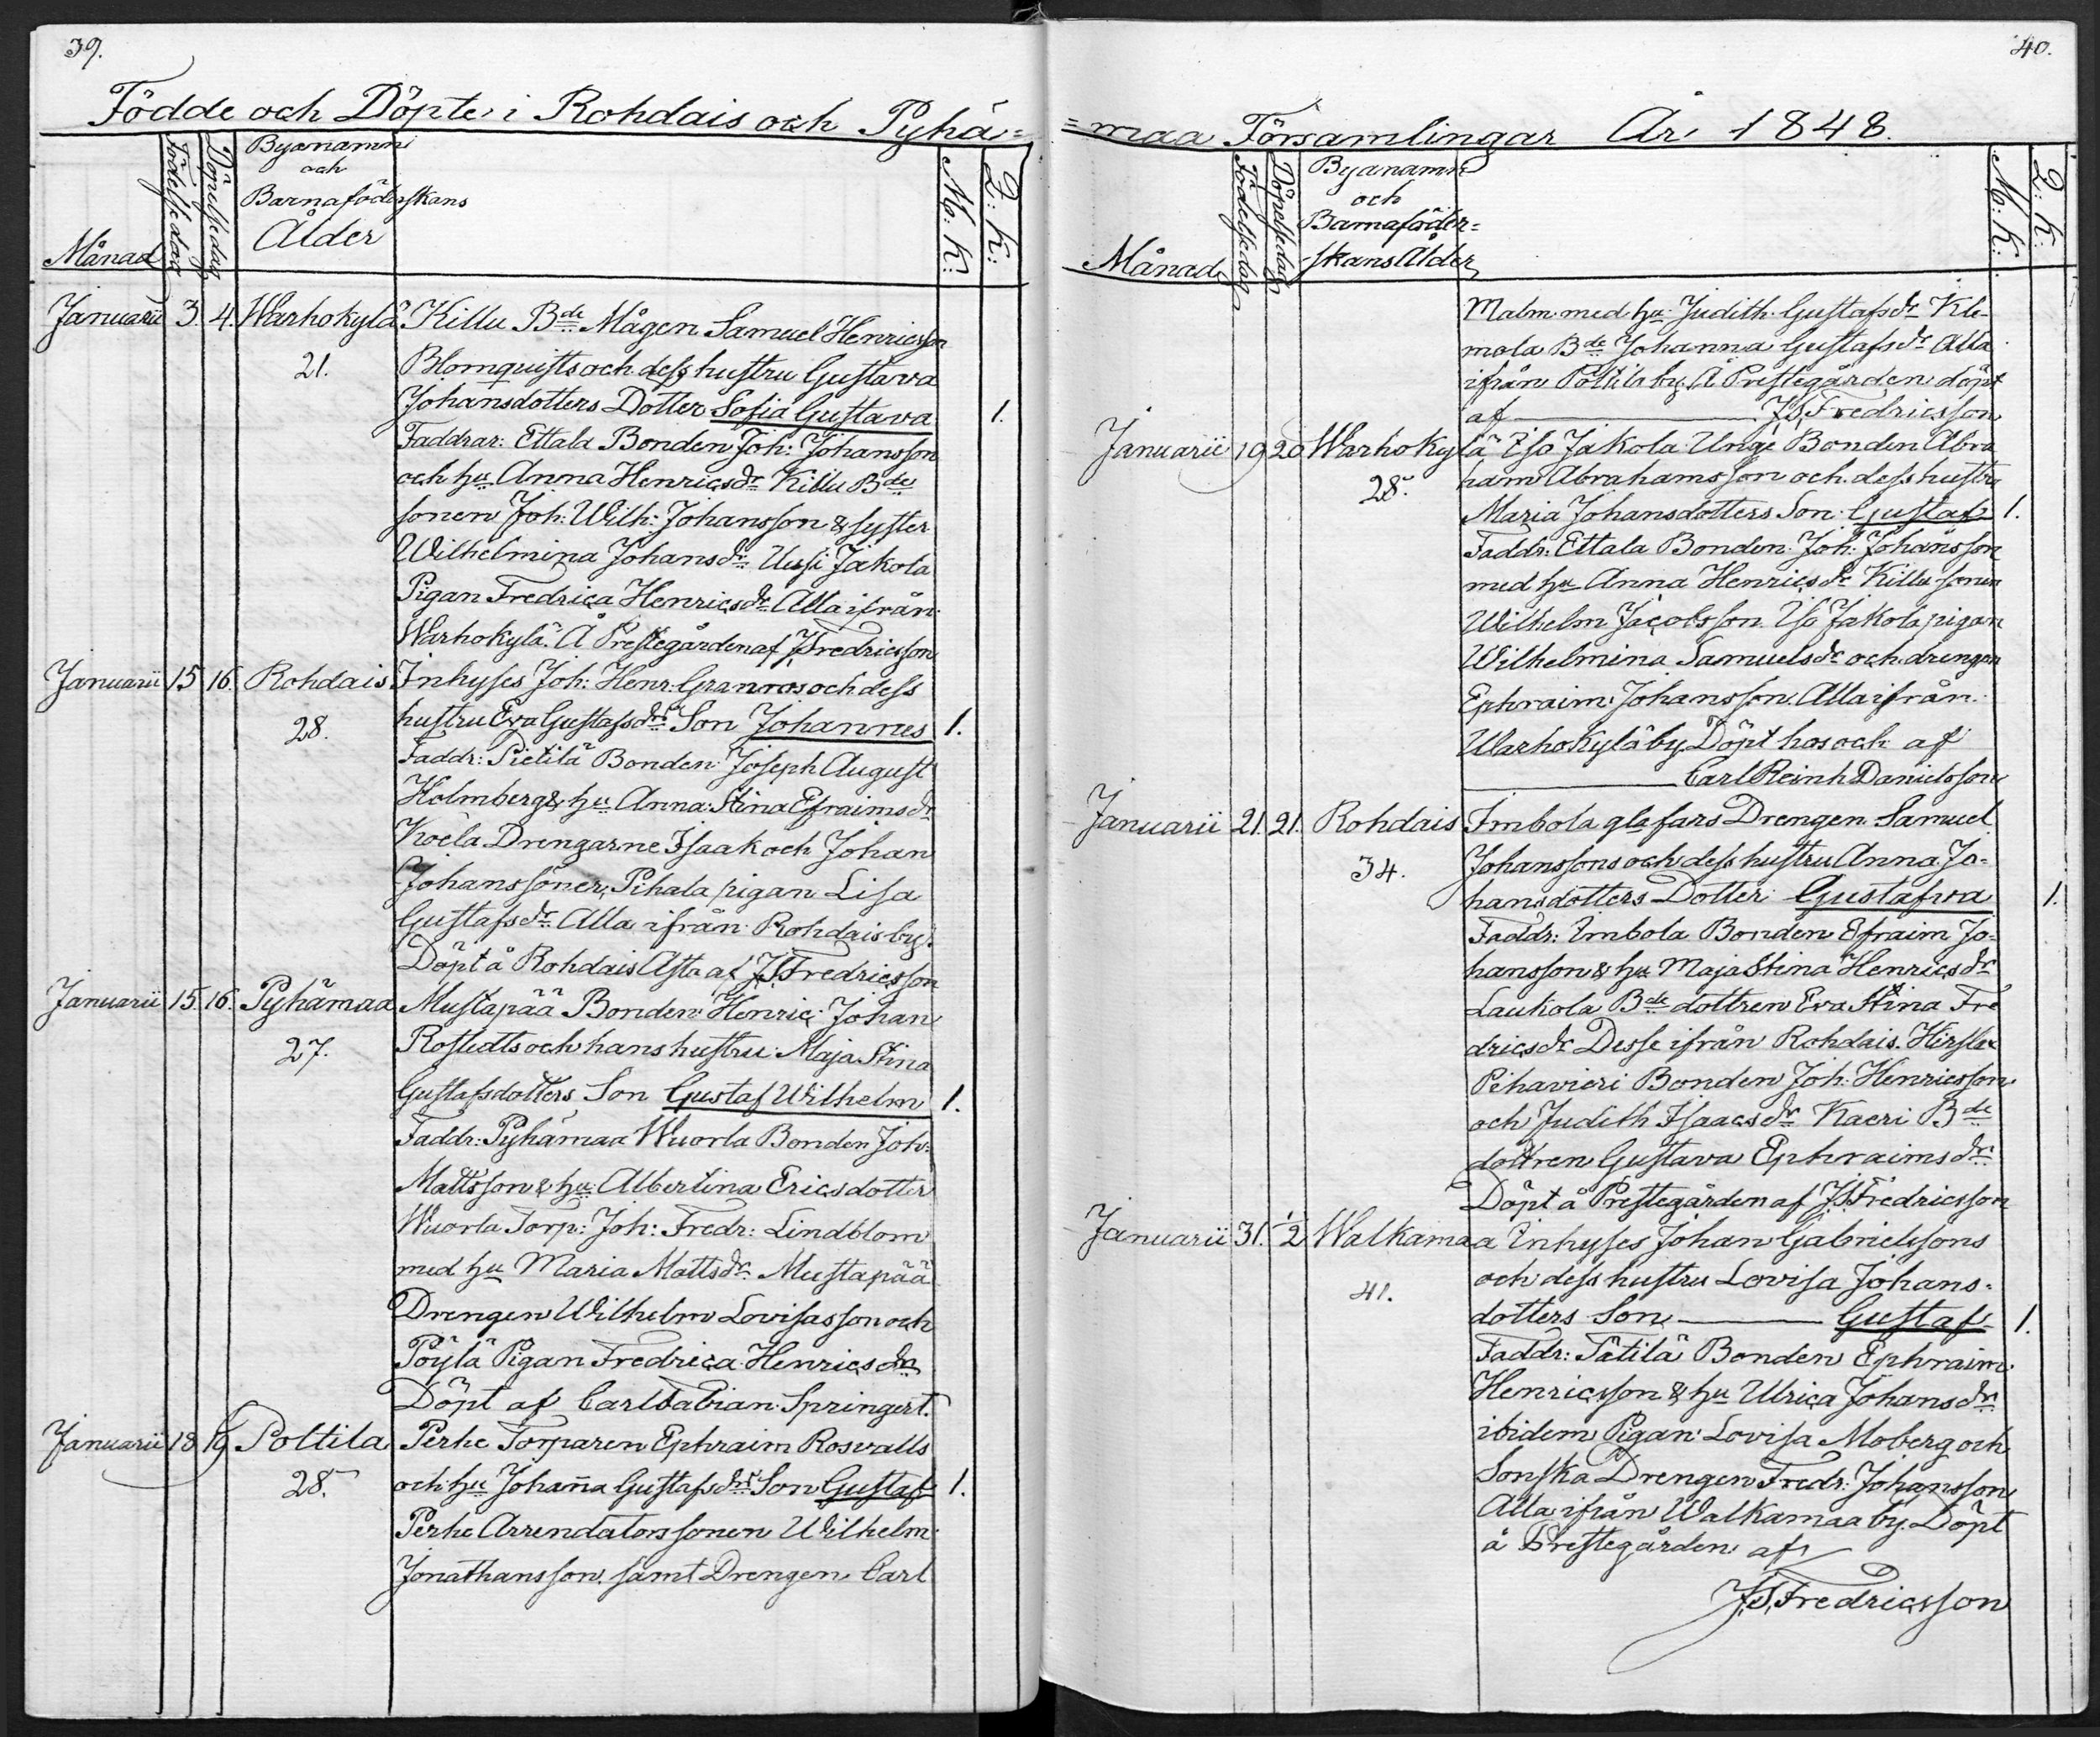 39.
Födde och Döpte i Rohdais och Pyhä=
Månad
Födelsedag
Döpelsedag
Byanamn
och
Barnaföderskans
Ålder
M: K:
Q: K:
Januarii 3. 4. Warhokylä Killu Bde Mågen Samuel Henricsson
21. Blomquists och dess hustru Gustava
Johansdotters Dotter Sofia Gustava 1.
Faddrar: Ettala Bonden Joh: Johansson
och hu Anna Henricsdr Killu Bde
sonen Joh: Wilh: Johansson & syster
Wilhelmina Johansdr Uusi Jakola
Pigan Fredrica Henricsdr Alla ifrån
Warhokylä. Å Prestegården af JS,Fredricsson
Januarii 15 16. Rohdais Inhyses Joh: Henr: Granroos och dess
28. hustru Eva Gustafsdrs Son Johannes 1.
Faddr: Pietilä Bonden Joseph August
Holmberg & hu Anna Stina Efraimsdr
Koëla Drengarne Isaak och Johan
Johanssöner, Pihala pigan Lisa
Gustafsdr Alla ifrån Rohdais by.
Döpt å Rohdais Asta af JS,Fredricsson
Januarii 15. 16. Pyhämaa Mustapää Bonden Henric Johan
27. Rostedts och hans hustru Maja Stina
Gustafsdotters Son Gustaf Wilhelm 1.
Faddr: Pyhämaa Wuorla Bonden Joh:
Mattsson & hu Albertina Ericsdotter
Wuorla Torp: Joh: Fredr: Lindblom
med hu Maria Mattsdr Mustapää
Drengen Wilhelm Lovisasson och
Pöylä Pigan Fredrica Henricsdr
Döpt af Carl Fabian Springert.
Januarii 18 19 Poltila Perhe Torparen Ephraim Rosvalls
28. och hu Johanna Gustafsdrs Son Gustaf 1.
Perhe Arrendatorssonen Wilhelm
Jonathansson, samt Drengen Carl
40.
=maa Församlingar År 1848.
Månad
Födelsedag
Döpelsedag
Byanamn
och
Barnaföder=
skans Ålder
M: K:
Q: K:
Malm med hu Judith Gustafsdr Kle-
mola Bde Johanna Gustafsdr Alla
ifrån Poltila by. Å Prestegården döpt
af JS,Fredricsson
Januarii 19 20 Warhokylä Iso Jakola Unge Bonden Abra
28. ham Abrahamsson och dess hustru
Maria Johansdotters Son Gustaf 1.
Faddr: Ettala Bonden Joh: Johansson
med hu Anna Henricsdr Killu sonen
Wilhelm Jacobsson Iso Jakola pigan
Wilhelmina Samuelsdr och drengen
Ephraim Johansson Alla ifrån
Warhokylä by. Döpt hos och af
Carl Reinh Danielsson
Januarii 21. 21. Rohdais Imbola glafars Drengen Samuel
34. Johanssons och dess hustru Anna Jo-
hansdotters Dotter Gustafva 1.
Faddr: Imbola Bonden Efraim Jo-
hansson & hu Maja Stina Henricsdr
Laukola Bde dottren Eva Stina Fre
dricsdr Desse ifrån Rohdais. Hirslax
Pihavieri Bonden Joh: Henricsson
och Judith Isaacsdr Kaeri Bde
dottren Gustava Ephraimsdr
Döpt å Prestegården af JS,Fredricsson
Januarii 31. 1/2 Walkamaa Inhyses Johan Gabrielssons
41. och dess hustru Lovisa Johans-
dotters Son Gustaf 1.
Faddr: Tätilä Bonden Ephraim
Henricsson & hu Ulrica Johansdr
ibidem Pigan Lovisa Moberg och
Sonska Drengen Fredr: Johansson
Alla ifrån Walkamaa by. Döpt
å Prestegården af
JS,Fredricsson